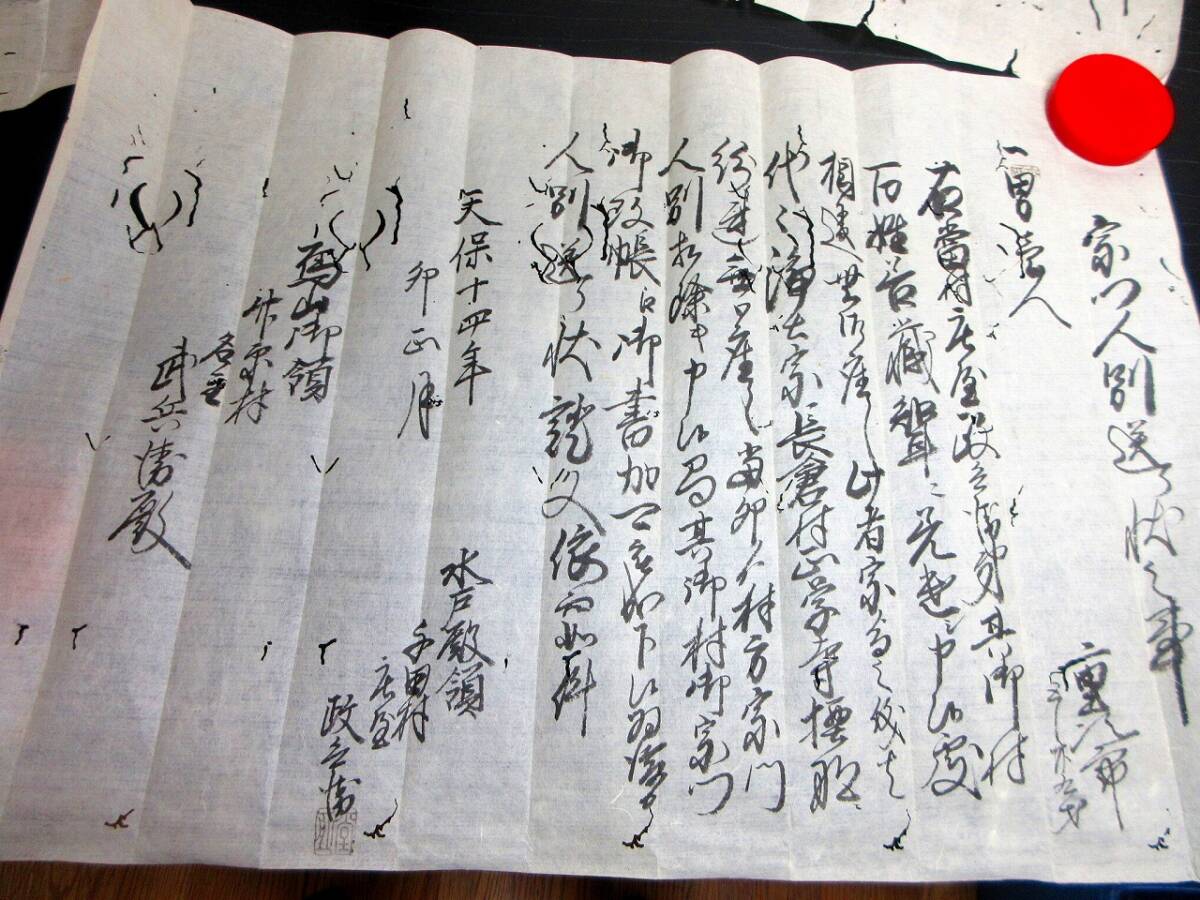 宗門人別送り状之事
一男壱人 重次郎
右當村庄屋政兵衛弟其御村
百姓善蔵聟ニ差遣シ申候処
相違無御座候此者宗旨之儀者
代々浄土宗長倉村正学寺檀那ニ
紛連無御座候當卯ゟ村方宗門
人別相除キ申候間其御村御宗門
御改帳江御書加可被下候為後日
人別送り状證文依而如件
天保十四年
卯正月
水戸殿領
手田村
庄屋
政兵衛
烏山御領
竹原村
名主
武兵衛殿